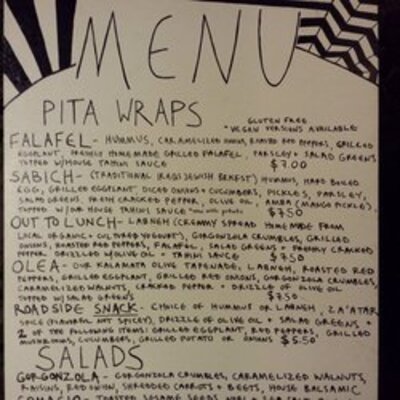 MENU
PITA WRAPS
GLUTEN FREE
+ VEGAN VERSIONS AVAILABLE
FALAFEL - HUMMUS, CARAMELIZED ONIONS, ROASTED RED PEPPERS, GRILLED
EGGPLANT, FRESHLY HOMEMADE GRILLED FALAFEL, PARSLEY + SALAD GREENS
TOPPED W/HOUSE TAHINI SAUCE $7.00
SABICH - (TRADITIONAL IRAQI JEWISH BRKFST) HUMMUS, HARD BOILED
EGG, GRILLED EGGPLANT, DICED ONIONS + CUCUMBERS, PICKLES, PARSLEY,
SALAD GREENS, FRESH CRACKED PEPPER, OLIVE OIL, AMBA (MANGO PICKLE),
TOPPED W/OUR HOUSE TAHINI SAUCE $7.50
OUT TO LUNCH - LABNEH (CREAMY SPREAD HOMEMADE FROM
LOCAL ORGANIC + CULTURED YOGURT), GORGONZOLA CRUMBLES, GRILLED
ONIONS, ROASTED RED PEPPERS, FALAFEL, SALAD GREENS + FRESHLY CRACKED
PEPPER. DRIZZLED W/OLIVE OIL + TAHINI SAUCE $7.50
OLEA - OUR KALAMATA OLIVE TAPENADE, LABNEH, ROASTED RED
PEPPERS, GRILLED EGGPLANT, GRILLED RED ONIONS, GORGONZOLA CRUMBLES,
CARAMELIZED WALNUTS, CRACKED PEPPER + DRIZZLE OF OLIVE OIL
TOPPED W/ SALAD GREENS $7.50
ROADSIDE SNACK - CHOICE OF HUMMUS OR LABNEH, ZA'ATAR
SPICE (FLAVORFUL NOT SPICEY), DRIZZLE OF OLIVE OIL + SALAD GREENS +
2 OF THE FOLLOWING ITEMS: GRILLED EGGPLANT, RED PEPPERS, GRILLED
MUSHROOMS, CUCUMBERS, GRILLED POTATO OR ONIONS $5.50
SALADS
GORGONZOLA - GORGONZOLA CRUMBLES, CARAMELIZED WALNUTS,
RAISINS, RED ONION, SHREDDED CARROTS + BEETS, HOUSE BALSAMIC
TOASTED SESAME SEEDS